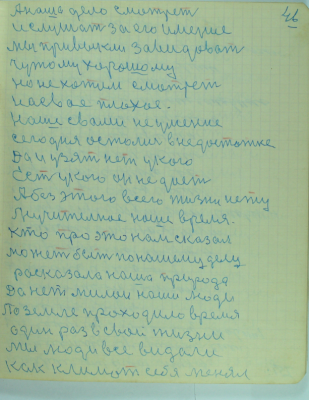 46
А наша дело смотрет
и слушат за его имение
мы привикли завидоват
чужому хорошому
но не хотим смотрет
на евое плохое.
Наше свами не умение
сегодня остолис в недостатке
Да и узят нет у кого
Ест у кого он не дает
А без этого всего жизни нету
Лучителное наше время.
Кто про это нам сказал
может быт по нашему делу
рассказала наша природа
Да нет милаи наши люди
По земле проходило время
один раз в свой жизни
мы люди все видали
как климат себя менял